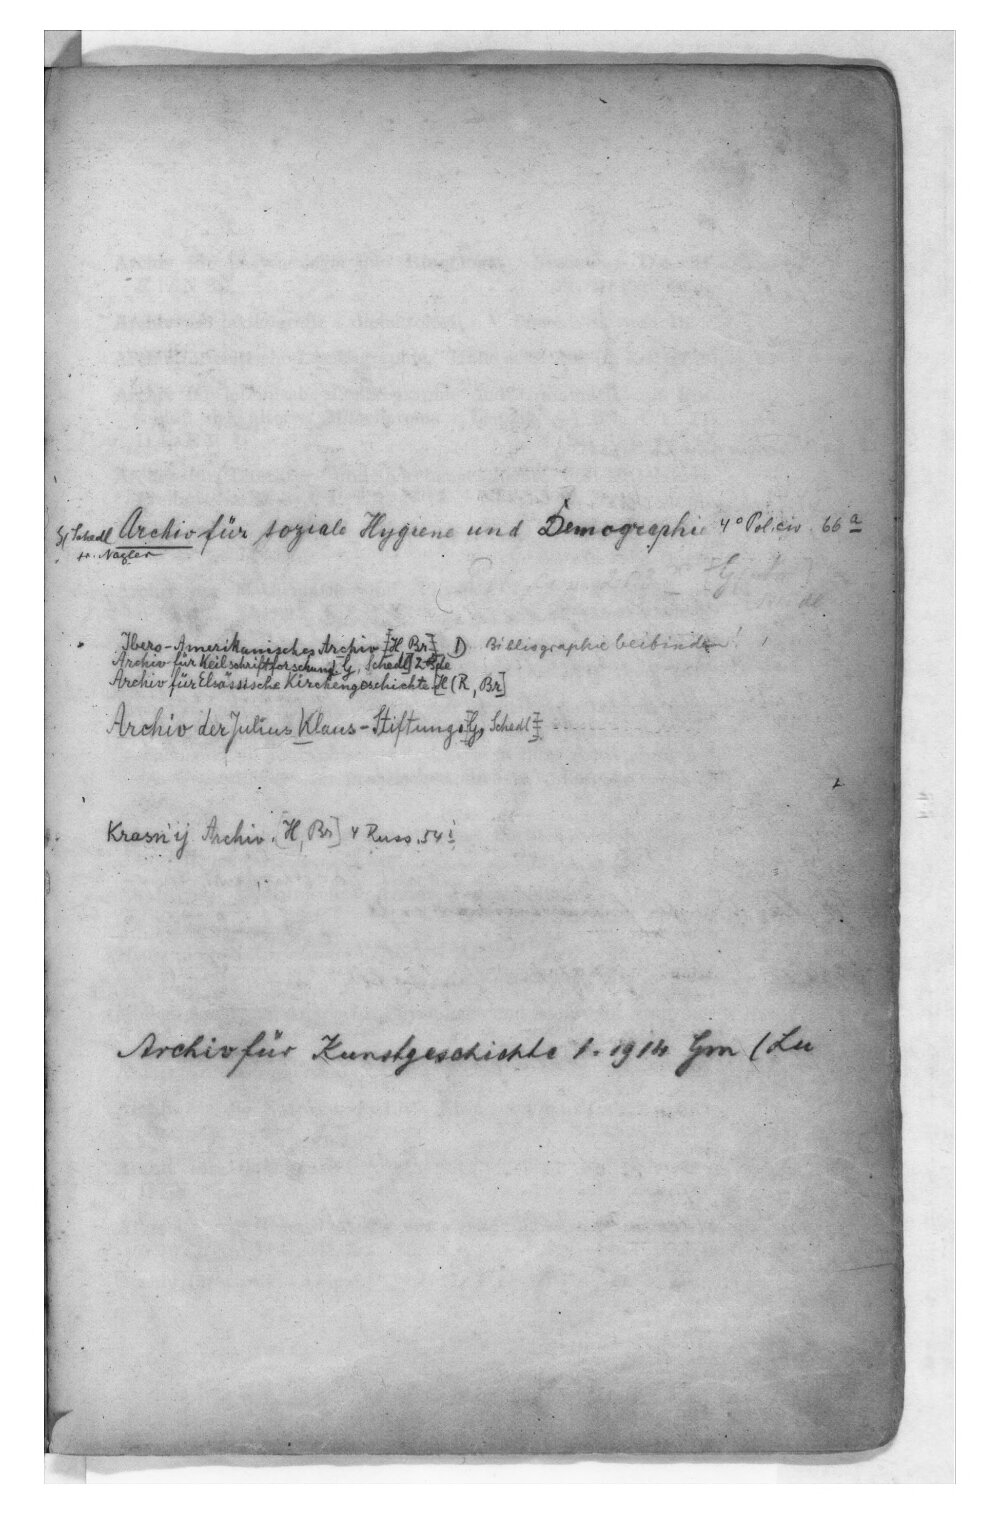 Schedl Archiv für soziale Hygiene und Demographie 4° Pol. civ. 66 a
Nagler
Ibero-Amerikanisches Archiv [H, Br] D Bibliographie beibinden!
Archiv für Keilschriftforschung G, Schedl
Archiv für Elsässische Kirchengeschichte. H (R, Br]
Archiv der Julius Klaus-Stiftung. [G, Schedl]
Krasnij Archiv. [H, Br] 4 Russ. 54 i
Archiv für Kunstgeschichte 1. 1914 Gm (Lu